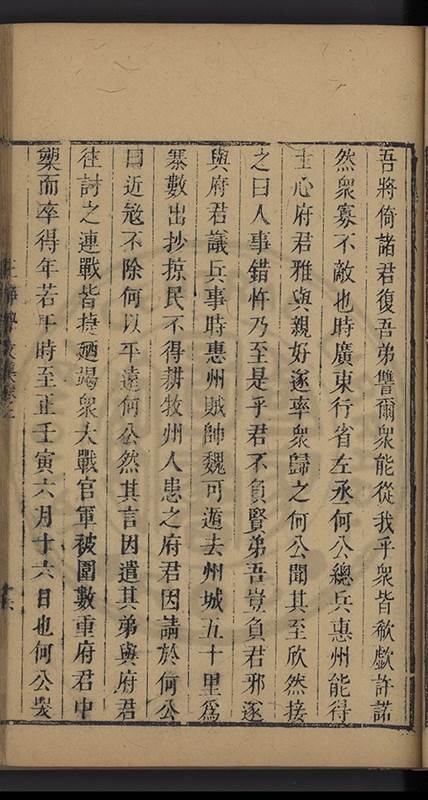 吾將倚諸君復吾弟讐爾衆能從我乎衆皆欷歔許諾
然衆寡不敵也時廣東行省左丞何公總兵惠州能得
士心府君雅與親好遂率衆歸之何公聞其至欣然接
之曰人事錯忤乃至是乎君不負賢弟吾豈負君邪遂
與府君議兵事時惠州賊帥魏可遁去州城五十里爲
寨數出抄掠民不得耕牧州人患之府君因請於何公
曰近寇不除何以平遠何公然其言因遣其弟與府君
往討之連戰皆捷廼竭衆大戰官軍被圍數重府君中
槊而卒得年若干時至正壬寅六月十六日也何公爰